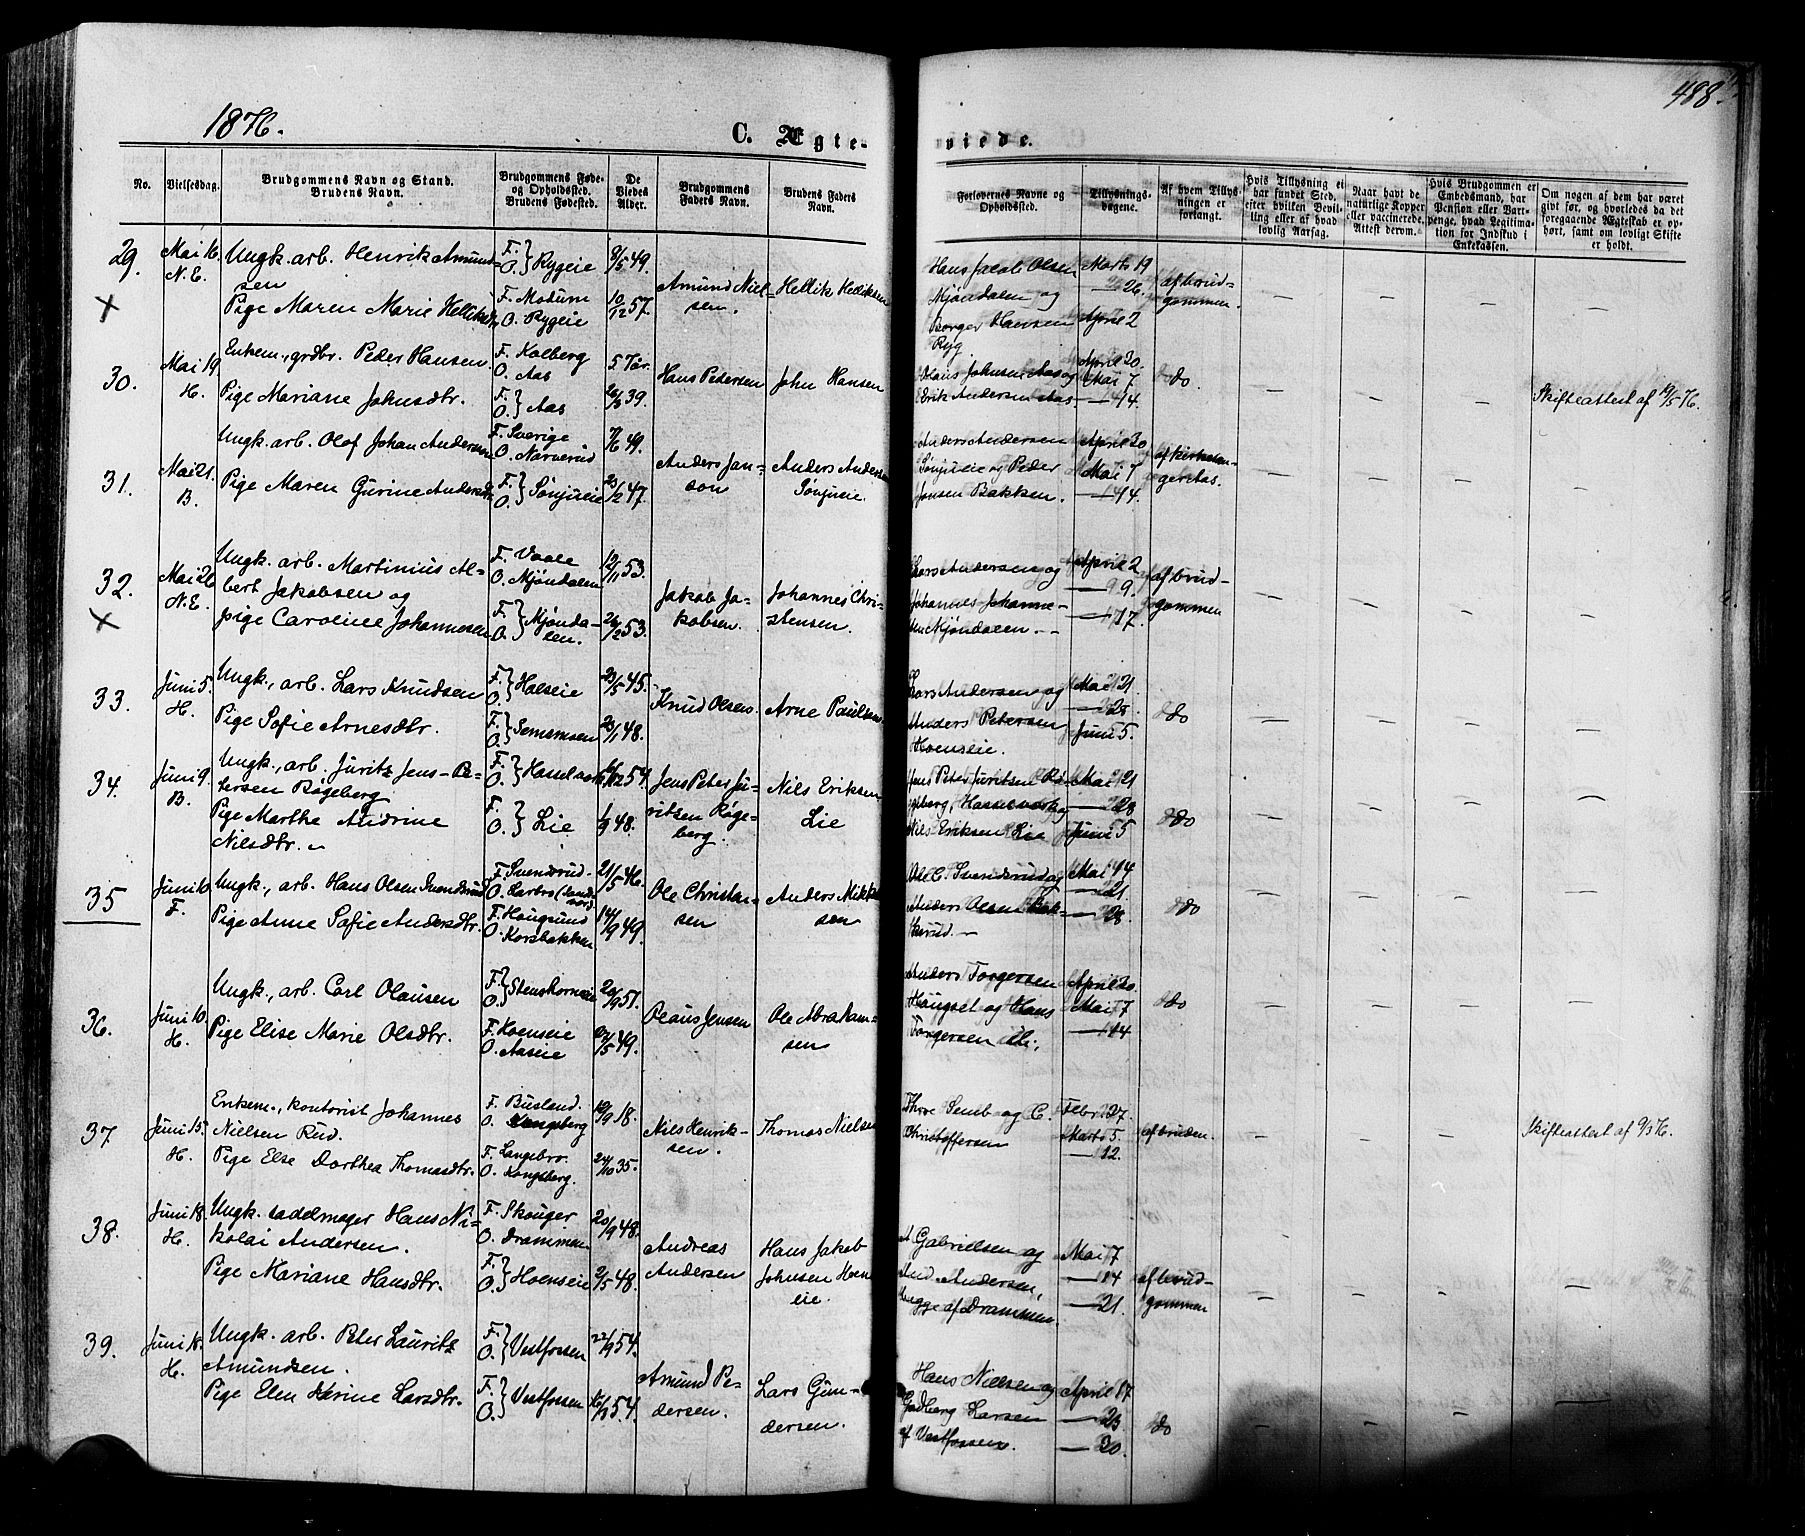 1876.
488.
C. Ægteviede.
No.
Vielsesdag.
Brudgommens Navn og Stand.
Brudens Navn.
Brudgommens Føde-
og Opholdssted.
Brudens Fødested.
De
Viedes
Alder.
Brudgommens
Faders Navn.
Brudens Faders
Navn.
Forlovernes Navne og
Opholdssted.
Tillysnings-
dagene.
Af hvem Tillys-
ningen er
forlangt.
Hvis Tillysning ei
har fundet Sted,
efter hvilken Bevil-
ling eller af hvad
lovlig Aarsag.
Naar havt de
naturlige Kopper
eller vaccinerede.
Attest derom.
Hvis Brudgommen er
Embedsmand, har
Pension eller Vart-
penge, hvad Legitima-
tion for Indskud i
Enkekassen.
Om nogen af dem har været
gift før, og hvorledes da det
foregaaende Ægteskab er op-
hørt, samt om lovligt Skifte
er holdt.
29. Mai 16. N.E.
Ungk. arb. Henrik Amund-
sen
Pige Maren Marie Helliksd.
F. O. } Rygeie 8/5 49.
F. Modum
O. Rygeie 10/12 57.
Amund Niel-
sen.
Hellik Helliksen
Hans Jacob Olsen
Mjøndalen og
Borger Hansen
Ryg.
Marts 19
— 26.
April 2
af brud-
gommen.
— — — —
30. Mai 19. H.
Enkem., grdbr. Peder Hansen
Pige Mariane Johnsdtr.
F. Kolberg
O. Aas
F. O. } Aas 39.
Hans Pedersen
John Hansen
Hans Johnsen Aas og
Erik Andersen Aas.
April 30.
Mai 7
— 14.
do.
— — —
Skifteattest af 19/5 76.
31. Mai 21. B.
Ungk. arb. Olof Johan Andersen
Pige Maren Gurine Andersd.
F. Sverige
O. Narverud 49.
F. O. } Sønjueie 23/12 47.
Anders Jan-
son
Anders Andersen
Sønjueie.
Anders Andersen
Sønjueie og Peder
Jonsen Bakken.
April 30
Mai 7
— 14.
— — — —
32. Mai 26. N.E.
Ungk. arb. Martinius Al-
bert Jakobsen og
pige Caroline Johannesen
F. Vaale
O. Mjøndalen 12/11 53.
F. O. } Mjønda-
len. 26/12 53.
Jakob Ja-
kobsen.
Johannes Chri-
stensen.
Lars Andersen og
Johannes Johanne-
sen Mjøndalen. —
April 2
— 9.
— 17.
af brud-
gommen
— — — —
33. Juni 5. H.
Ungk., arb. Lars Knudsen
Pige Sofie Arnesdtr.
F. O. } Holseie 23/5 45.
F. O. } Semsmoen 28/1 48.
Knud Olsen.
Arne Paulsen
Lars Andersen og
Anders Petersen
Hoenseie.
Mai 21
— 28
Juni 5.
do
— — — —
34. Juni 9. B.
Ungk., arb. Juritz Jens-Pe-
tersen Bøgeberg
Pige Marthe Andrine
Nilsdtr.
F. O. }
F. O. } Lie 1/9 48.
Jens Peter Ju-
ritsen Røge-
berg.
Nils Eriksen
Lie
Nils Eriksen Lie
Mai 21
— 28
Juni 5
do
— — — —
35 Juni 10 F.
Ungk., arb. Hans Olsen Svendsrud
Pige Anne Sofie Andersdtr.
F. Svendsrud 21/5 46.
F. Hougsund
O. Korsbakken 14/9 49.
Ole Christian-
sen
Anders Mikkel-
sen
Ole C. Svendsrud og
Mai 14
— 21.
— 28
do
— — — —
36. Juni 10. H.
Ungk., arb. Carl Olausen
Pige Elise Marie Olsdtr.
F. O. } Stenskorneie 20/9 51.
F. Hoenseie
O. Aaseie 49.
Olaus Jensen
Ole Abraham-
sen
Anders Torgersen
Haugset og Hans
Torgersen
April 30.
Mai 7
— 14
do
— — — —
37 Juni 15. H.
Enkem., kontorist Johannes
Nielsen Rud.
Pige Else Dorthea Thomasdtr.
F. Busland.
O. Kongsberg 18.
F. Langebro.
O. Kongsberg. 24/10 35.
Niels Henrik-
sen.
Thomas Nielsen
Thore Semb og C.
Christoffersen
Febr 27.
Marts 5.
— 12.
af bruden.
— — —
Skifteattest af 9/3 76.
38. Juni 18. H.
Ungk. sadelmager Hans Ni-
kolai Andersen.
Pige Mariane Hansdtr.
F. Skouger
O. Drammen 20/9 48.
F. O. } Hoenseie 2/5 48.
Andreas
Andersen
Hans Jakob
Johnsen Hoens-
eie.
A. Gabrielsen og
And. Andersen,
begge af Drammen.
Mai 7
— 14
— 21.
af brud-
gommen
— — — —
39. Juni 18. H.
Ungk. arb. Peter Lauritz
Amundsen.
Pige Elen Karine Larsdtr.
F. O. } Vestfossen 22/9 54.
F. O. } Vestfossen 54.
Amund Pe-
dersen.
Lars Gun-
dersen.
Hans Nielsen og
Gudberg Larsen
af Vestfossen.
April 17
— 23
— 30.
do
— — — —